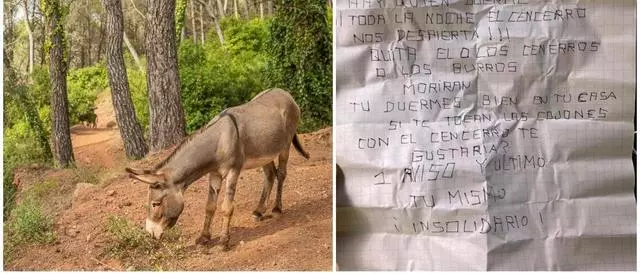 HAY QUIEN DUERME
¡TODA LA NOCHE EL CENCERRO
NOS DESPIERTA!!!
QUITA EL O LOS CENCERROS
O LOS BURROS
MORIRAN
TU DUERMES BIEN EN TU CASA
SI TE TOCAN LOS COJONES
CON EL CENCERRO TE
GUSTARIA?
1 AVISO Y ULTIMO
TU MISMO
¡INSOLIDARIO!